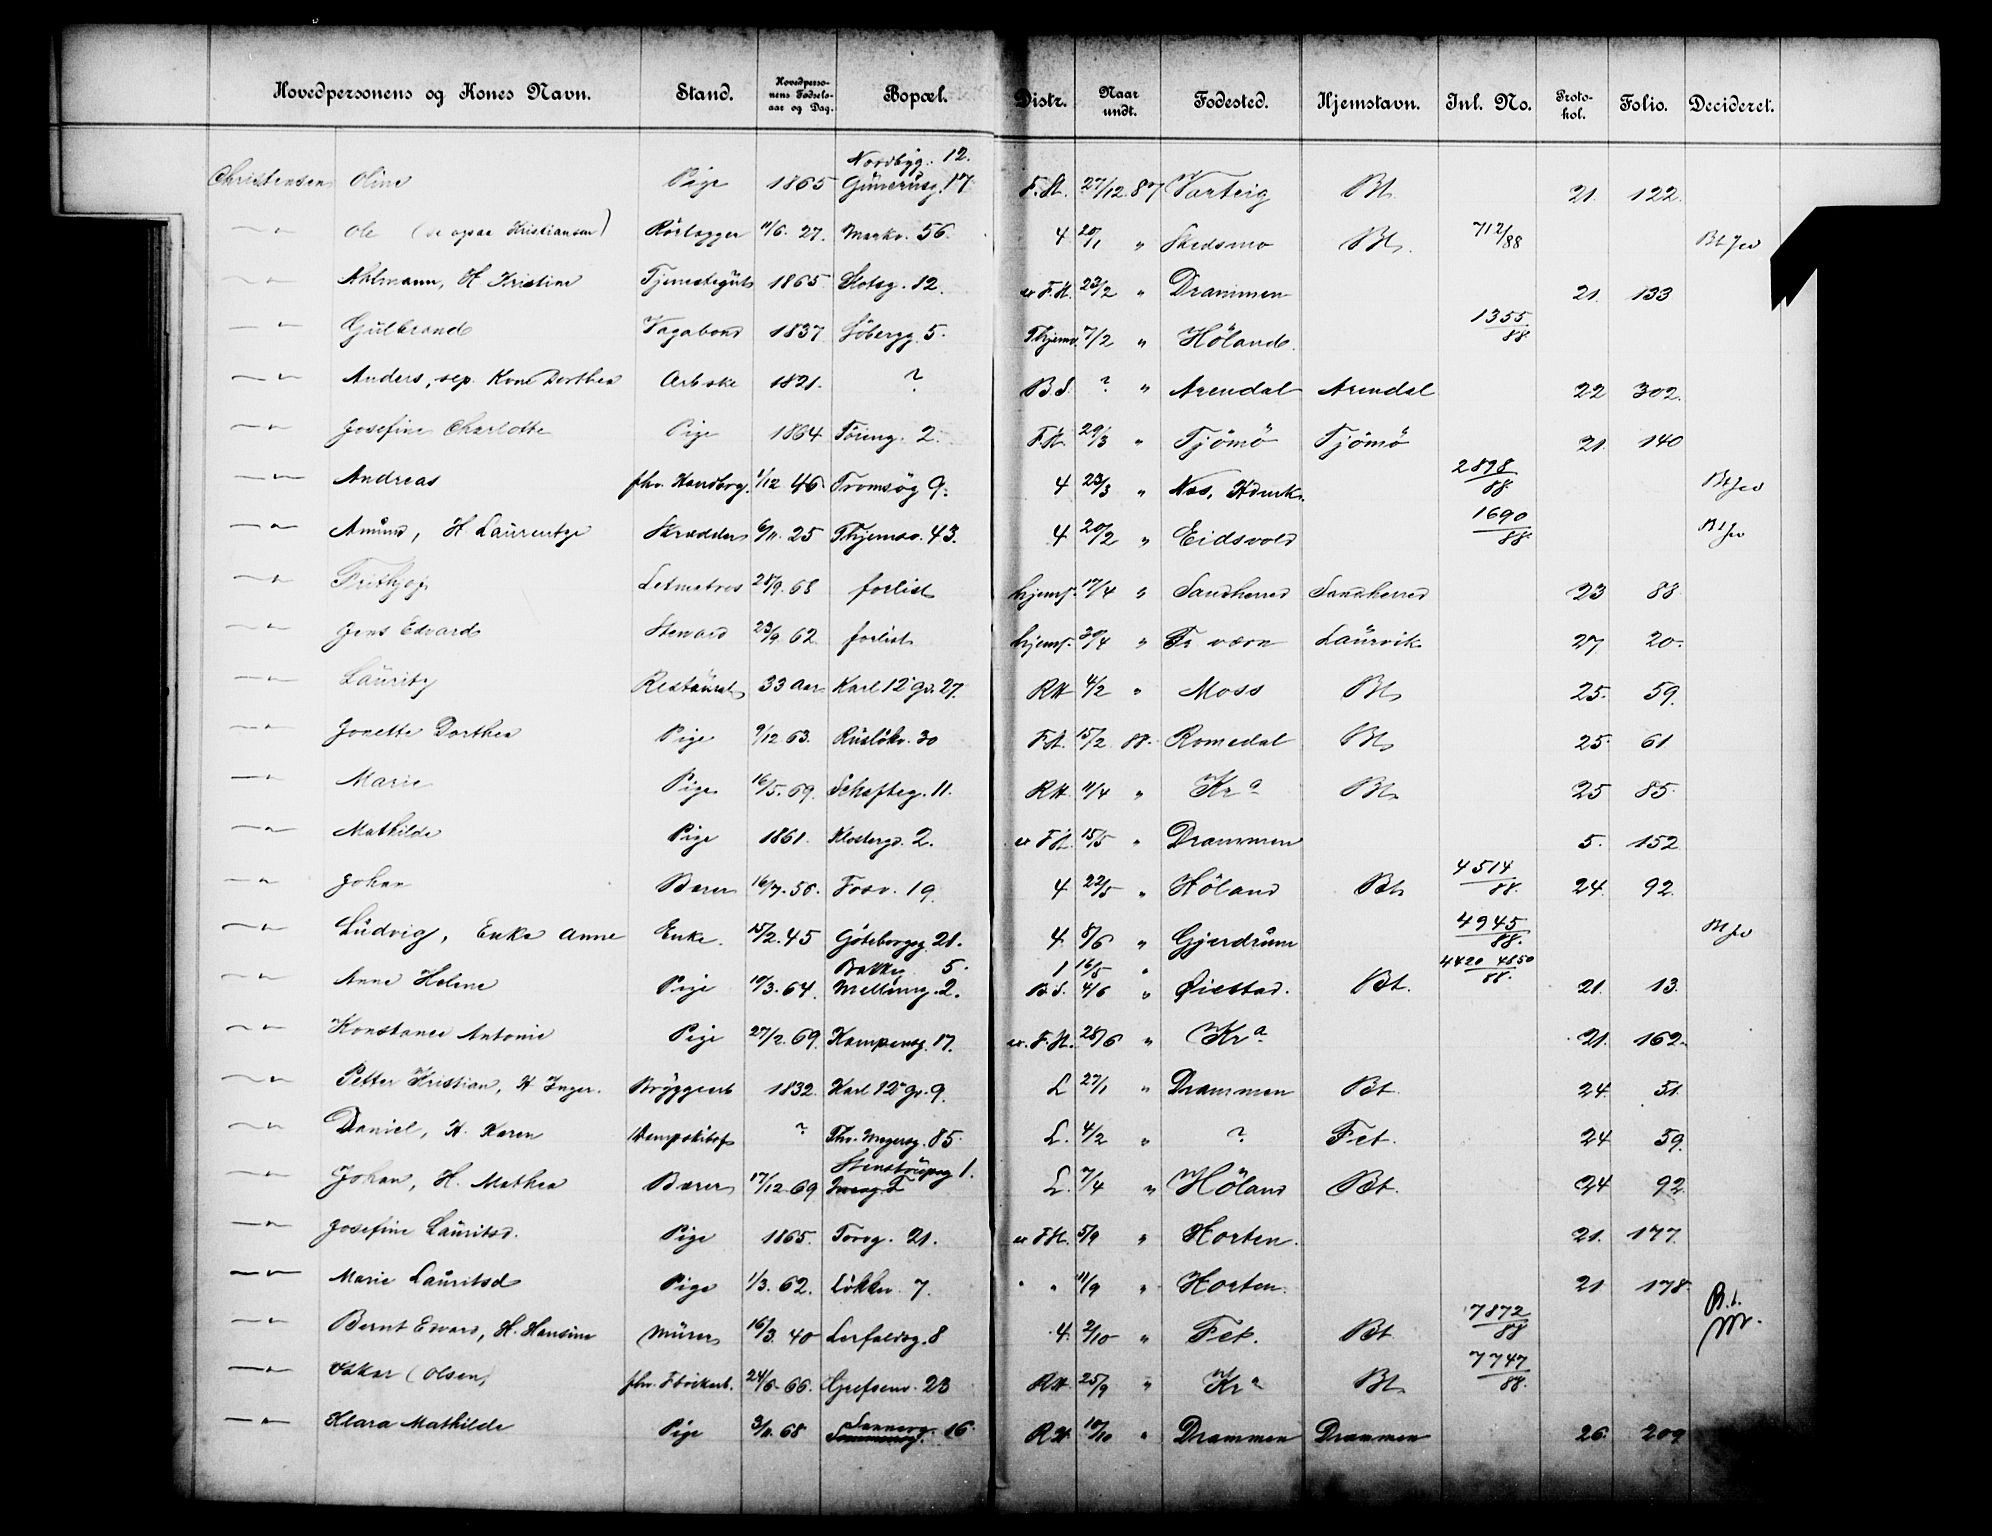 Hovedpersonens og Kones Navn. Stand. Hovedpersonens Fødselsaar og Dag. Bopæl. Distr. Naar undt. Fødested. Hjemstavn. Inl. No. Protokol. Folio. Decideret.
Nordbyg. 12.
Christensen Oline Pige 1865 Günerusg. 17 F.St. 27/12 87 Varteig Bt. 21. 122.
— " — Ole (se ogsaa Kristiansen) Rörlægger 11/6. 27. Markv. 56. 4 20/1 " Skedsmo Bt. 712/88
— " — Ahlmann, H. Kristine 1865 Slotsg. 12. F.St. 23/2 " Drammen 21. 133
— " — Gulbrand Vagabond 1837 Söbergg. 5. Thjemv. 7/2 " Höland. 1355/88
— " — Anders, sep. Kone Dorthea Arb.ske 1821. ? B.S. ? " Arendal Arendal 22 302.
— " — Josefine Charlotte Pige 1864 2. F.St. 29/3 " Tjömö Tjömö 21. 140
— " — Andreas fhv. Handbog. 1/12 46. Tromsög 9. 4 23/3 " Nes, Hdmk. 2898/88
— " — Amund, H. Laurentze Skrædder 6/11. 25 Thjemsv. 43. 4 20/2 " Eidsvold 1690/88.
— " — Frithjof Letmatros 28/9. 68 forlist hjems. 17/4 " Sandherred Sandherred 23 88.
— " — Jens Edvard Steward 23/9 62 forlist hjems. 30/4 " Fr værn Laurvik 27 20.
— " — Lauritz Restaurat. 33 Aar Karl 12 gd. 27. RH 4/2 " Moss Bt. 25. 59.
— " — Jonette Dorthea Pige 9/12 63. Ruslökv. 30 F.St. 15/2 88. Romedal Bt. 25. 61
— " — Marie Pige 16/5. 69. Schafteg. 11. RH. 11/4 " Kra Bt. 25 85.
— " — Mathilde Pige 1861. Klosterg. 2. F.St. 15/5 " Drammen 5. 152
— " — Johan Bærer 16/7. 50. Fosv. 19. 4 22/5 " Höland Bt. 4514/88. 24. 92.
— " — Ludvig, Enke Anne Enke. 15/2. 45 Göteborgsg. 21. 4. 8/6 " Gjerdrum 4945/88.
5. 1 16/5 " 4420 4850/88.
— " — Anne Helene Pige 10/3. 64. 2. B.S. 4/6 " Öiestad. Bt. 21. 13.
— " — Konstance Antonie Pige 27/2. 69. Kampensg. 17. F.St. 28/6 " Kra 21. 162.
— " — Petter Kristian, H Inger. Bryggearb 1832. Karl 12 gd. 9. L 27/1 " Drammen Bt. 24. 51.
— " — Daniel, H. Karen ? Thv. Meyersg. 85. L. 4/2 " ? Fet. 24 59.
Stenstrupsg 1.
— " — Johan, H. Mathea Bærer 17/12. 69 L. 7/4 " Höland Bt. 24 92
— " — Josefine Lauritsd. Pige 1865. Torvg. 21. F.St. 5/9 " Horten. 21. 177.
— " — Marie Lauritsd Pige 1/3. 62. Lökkev. 7. " 11/9 " Horten. 21 178.
— " — Bernt Edvard, H. Hansine Murer 16/3. 40 Lerfaldsg. 8 4. 2/10 " Fet. Bt. 7872/88 B.t.
— " — Oskar (Olsen) fhv. 24/6. 66. Grefsenv. 23 RH. 25/9 " Kra Bt. 7747/88.
Sannerg.
— " — Klara Mathilde Pige 3/11. 68 16. RH. 10/10 " Drammen Drammen 26. 209